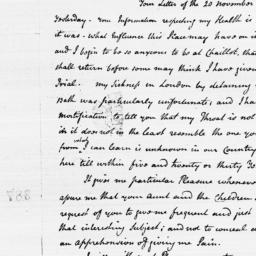 Your Letter of the 20 November
Yesterday. Your Information respecting my Health is
it was. What Influence this Place may have on it
and I begin to be so anxious to be at Chaillot, that
shall return before some may think I have given
Trial. My Sickness in London by detaining
Bath was particularly unfortunate; and I have
Mortification to tell you that my Throat is not
in it does not in the least resemble the one you
from, which I can learn is unknown in our Country
here till within five and twenty or thirty Ye
It gives me particular Pleasure whenever
assure me that your Aunt and the Children
request of you to give me frequent and just
that interesting Subject; and not to conceal
an apprehension of giving me Pain.